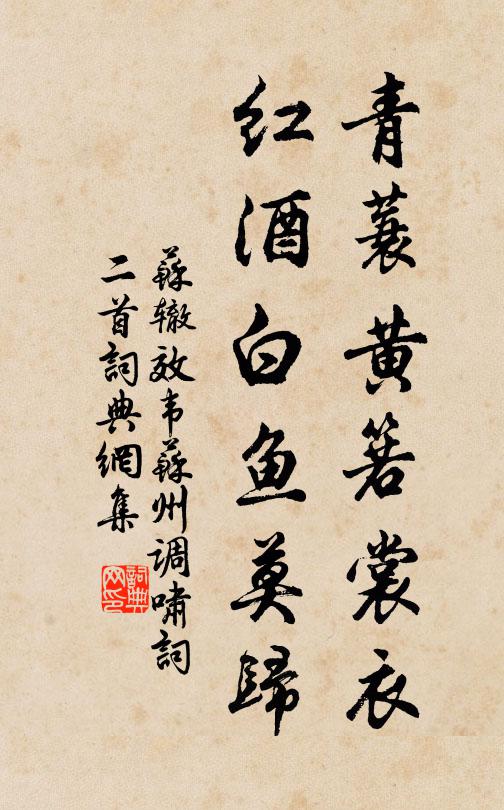 青蓑黄箬裳衣
红酒白鱼莫歸
蘇辙效韦蘇州调嘯詞
二首詞典網集
詞典
网印